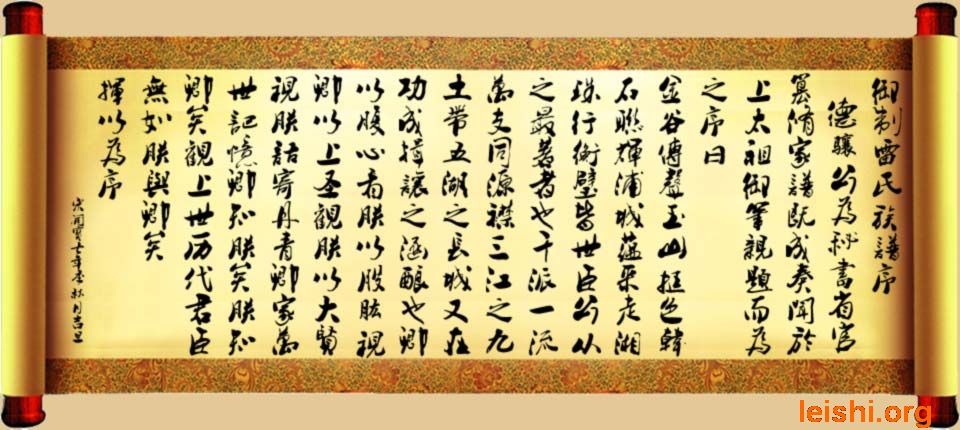 御制雷氏族譜序
德驤公為秘書省官
纂脩家譜既成奏聞於
上太祖御筆親題而為
之序曰
金谷傳聲玉山挺色韓
石聯輝浦城蘊采走湘
珠行衡璧皆世臣公從
之最著者也千派一流
萬支同源襟三江之九
土帶五湖之長城又在
功成揖讓之涵釀也卿
以腹心看朕以股肱視
卿以上圣觀朕以大賢
視朕語寄丹青卿家萬
世記憶卿知朕矣朕知
卿矣觀上世历代君臣
無如朕與卿矣
揮以為序
宋開寶五年季秋月吉旦
leishi.org